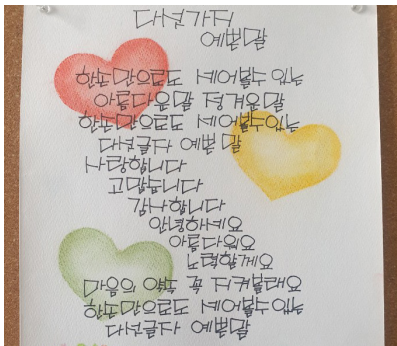 다섯가지
예쁜말
한손만으로도 세어볼수 있는
아름다운말 정겨운말
한손만으로도 세어볼수있는
다섯글자 예쁜 말
사랑합니다
고맙습니다
감사합니다
안녕하세요
아름다워요
노력할게요
마음의 약속 꼭 지켜볼래요
한손만으로도 세어볼수 있는
다섯글자 예쁜말